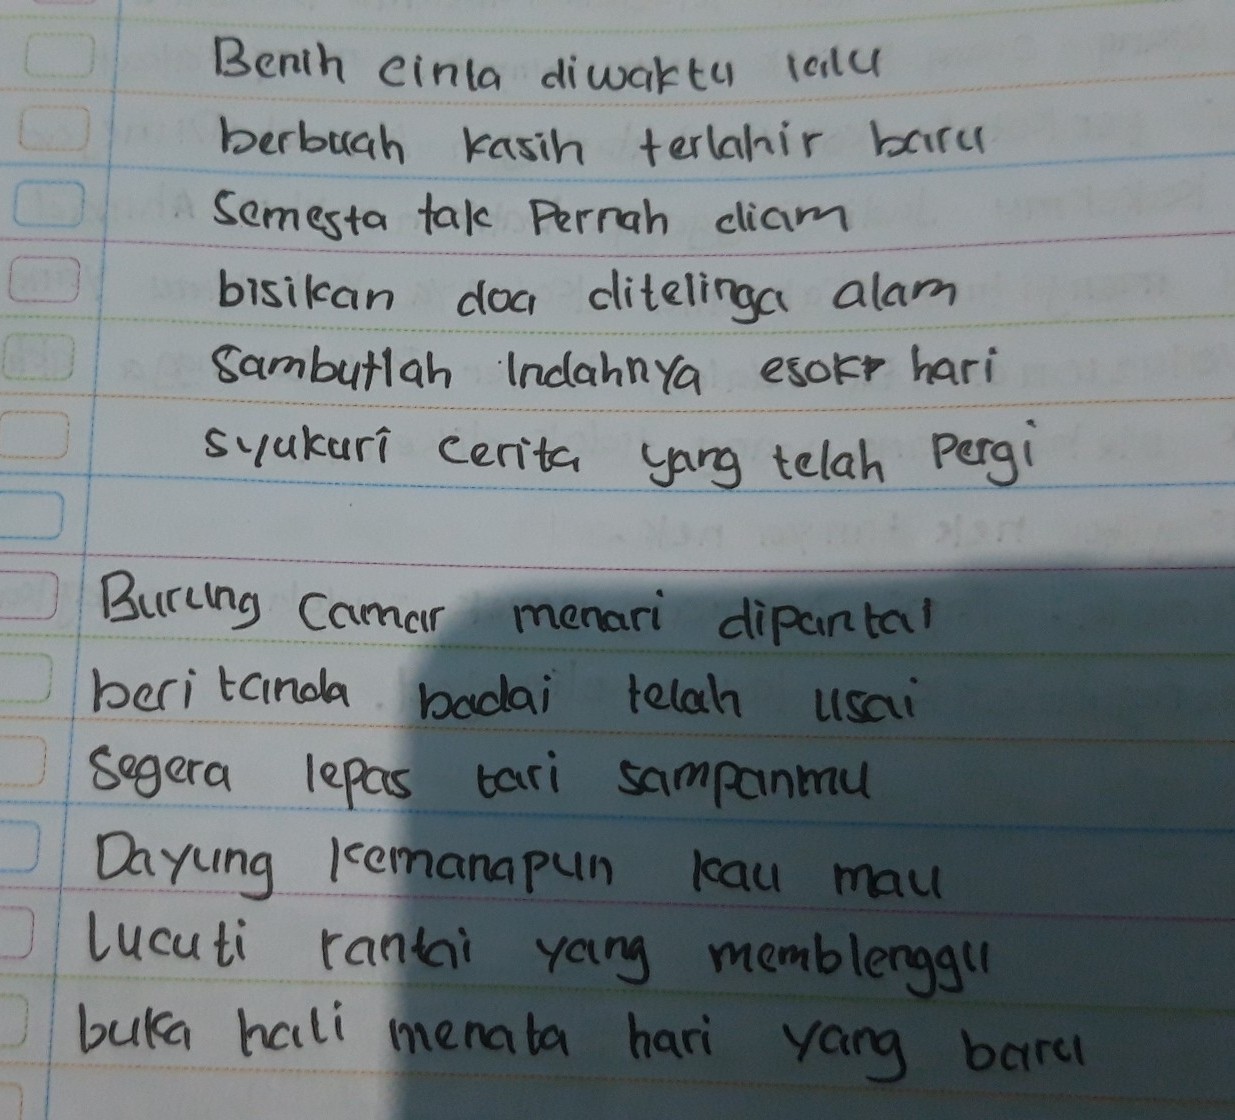 Benih cinta diwaktu lalu
berbuah kasih terlahir baru
Semesta tak Pernah diam
bisikan doa ditelinga alam
Sambutlah Indahnya esok hari
syukuri cerita yang telah Pergi
Burung Camar menari dipantai
beri tanda badai telah usai
Segera lepas tari sampanmu
Dayung kemanapun kau mau
Lucuti rantai yang memblenggu
buka hati menata hari yang baru